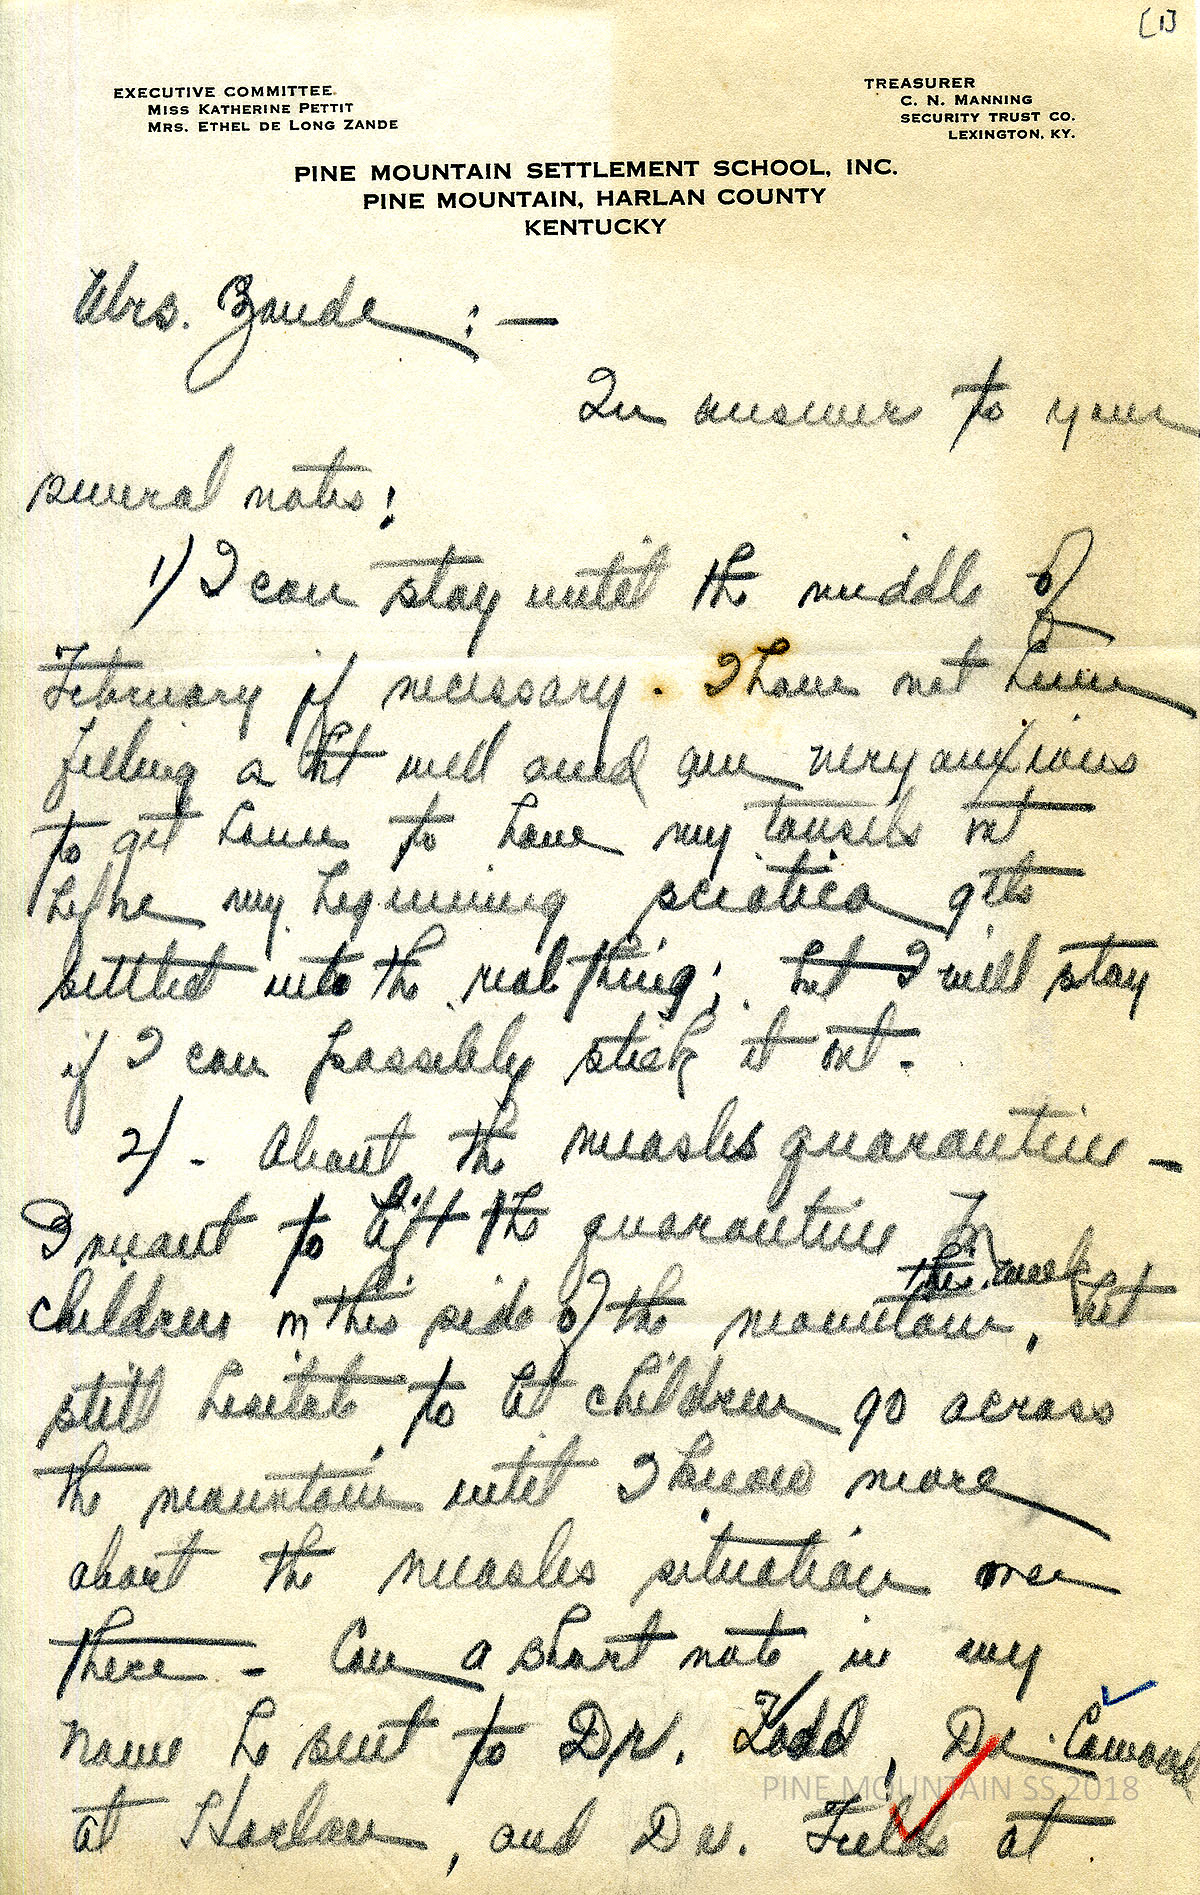 [1]
EXECUTIVE COMMITTEE
MISS KATHERINE PETTIT
MRS. ETHEL DE LONG ZANDE
TREASURER
C. N. MANNING
SECURITY TRUST CO.
LEXINGTON, KY.
PINE MOUNTAIN SETTLEMENT SCHOOL, INC.
PINE MOUNTAIN, HARLAN COUNTY
KENTUCKY
Mrs. Zande :—
In answer to your
several notes:
1) I can stay until the middle of
February if necessary. I have not been
feeling a bit well and am very anxious
to get home to have my tonsils out
before my beginning sciatica gets
settled into the real thing; but I will stay
if I can possibly stick it out.
2) - About the measles quarantine —
I meant to lift the quarantine for
this week
children on this side of the mountain, but
still hesitate to let children go across
the mountain until I know more
about the measles situation over
there - Can a short note in my
name be sent to Dr. Todd, Dr. Cawood
at Harlan, and Dr. Fields at
PINE MOUNTAIN SS 2018